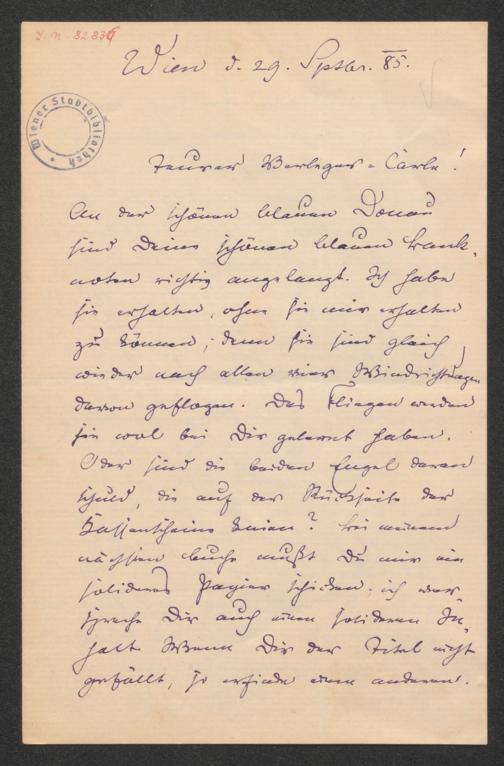 J. N. 82836
Wiener Stadtbibliothek
Wien d. 29. Septbr. 85.
Teurer Verleger-Carle!
An der schönen blauen Donau
sind Deine schönen blauen Bank-
noten richtig angelangt. Ich habe
sie erhalten, ohne sie mir erhalten
zu können; denn sie sind gleich
wieder nach allen vier Windrichtungen
davon geflogen. Das Fliegen werden
sie wol bei Dir gelernt haben.
Oder sind die beiden Engel daran
schuld, die auf der Rückseite der
Kassenscheine knien? Bei meinem
nächsten Buche mußt Du mir ein
solideres Papier schicken; ich ver-
spreche Dir auch einen solideren In-
halt. Wenn Dir der Titel nicht
gefällt, so erfinde einen anderen.